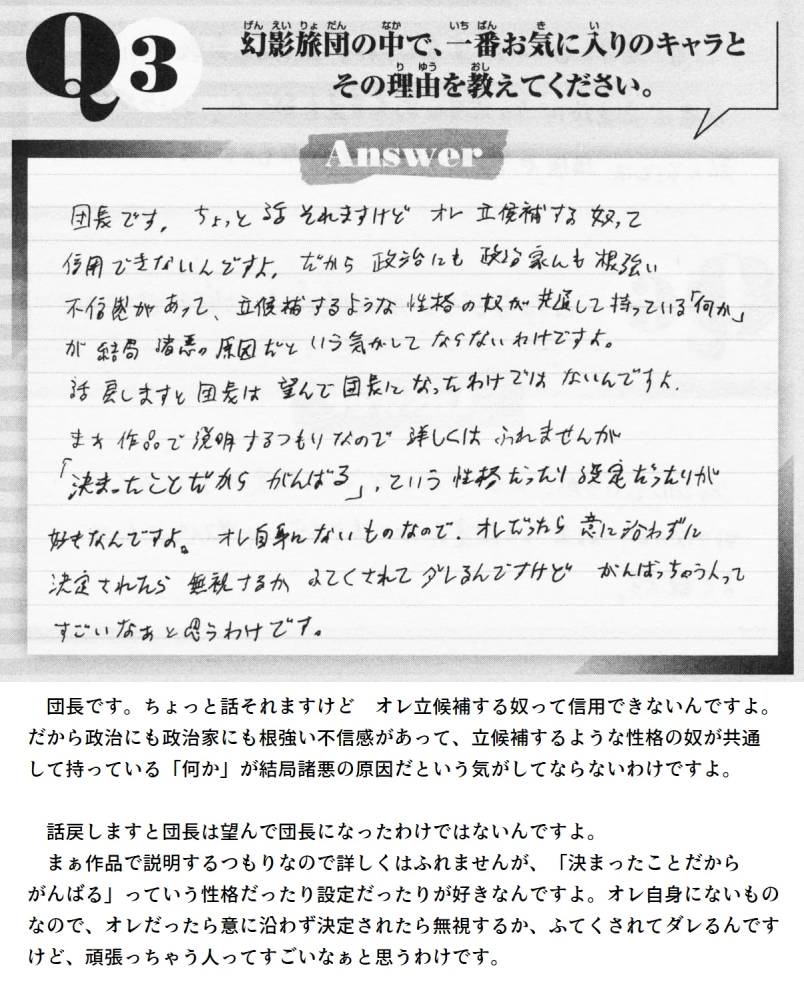 Q3
幻影旅団の中で、一番お気に入りのキャラと
その理由を教えてください。
Answer
団長です。ちょっと話それますけど オレ立候補する奴って
信用できないんですよ。だから政治にも政治家にも根強い
不信感があって、立候補するような性格の奴が共通して持っている「何か」
が結局諸悪の原因だという気がしてならないわけですよ。
話戻しますと団長は望んで団長になったわけではないんですよ。
まぁ作品で説明するつもりなので詳しくはふれませんが
「決まったことだからがんばる」、ていう性格だったり設定だったりが
好きなんですよ。オレ自身にないものなので、オレだったら意に沿わずに
決定されたら無視するかふてくされてダレるんですけど がんばっちゃう人って
すごいなぁと思うわけです。
団長です。ちょっと話それますけど オレ立候補する奴って信用できないんですよ。
だから政治にも政治家にも根強い不信感があって、立候補するような性格の奴が共通
して持っている「何か」が結局諸悪の原因だという気がしてならないわけですよ。
話戻しますと団長は望んで団長になったわけではないんですよ。
まぁ作品で説明するつもりなので詳しくはふれませんが、「決まったことだから
がんばる」っていう性格だったり設定だったりが好きなんですよ。オレ自身にないもの
なので、オレだったら意に沿わず決定されたら無視するか、ふてくされてダレるんです
けど、頑張っちゃう人ってすごいなぁと思うわけです。